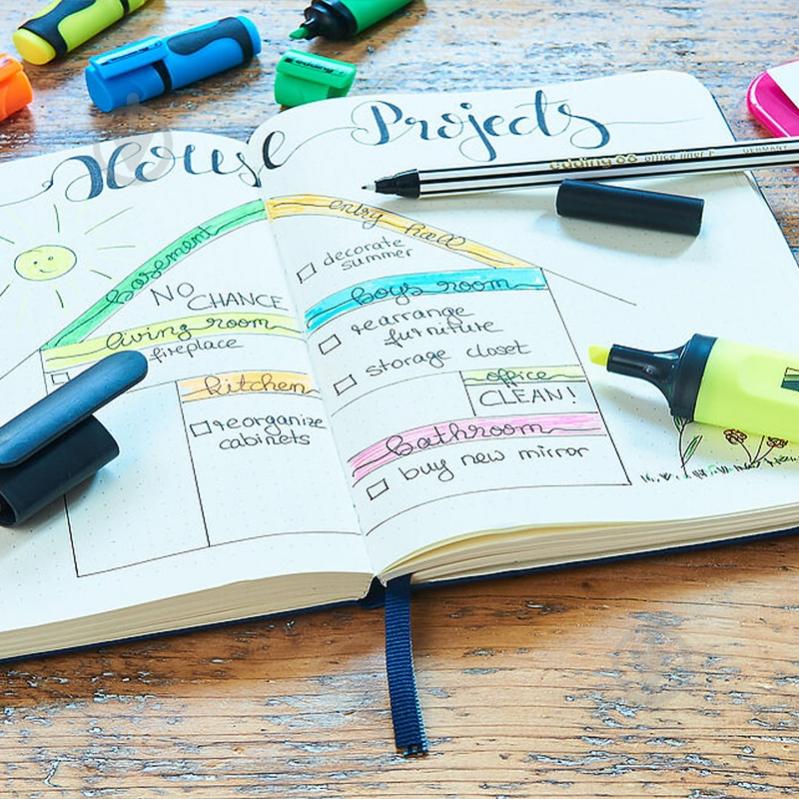 House Projects
basement
NO
CHANCE
living room
fireplace
kitchen
reorganize
cabinets
entry hall
decorate
summer
boys room
rearrange
furniture
storage closet
office
CLEAN!
bathroom
buy new mirror
edding 88 office liner F
GERMANY
edding